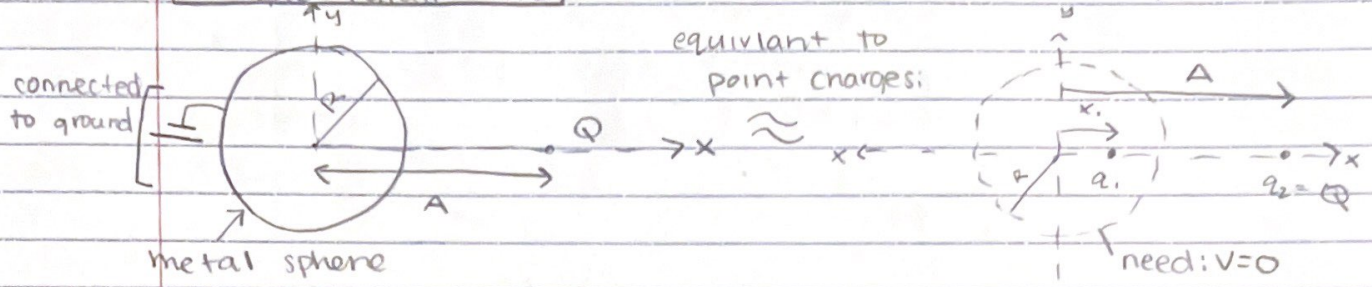 y
connected
to ground
R
Q
x
A
metal sphere
equivlant to
point charges:
≈
y
A
x₁
x
x
R
q₁
q₂ = Q
need: V=0